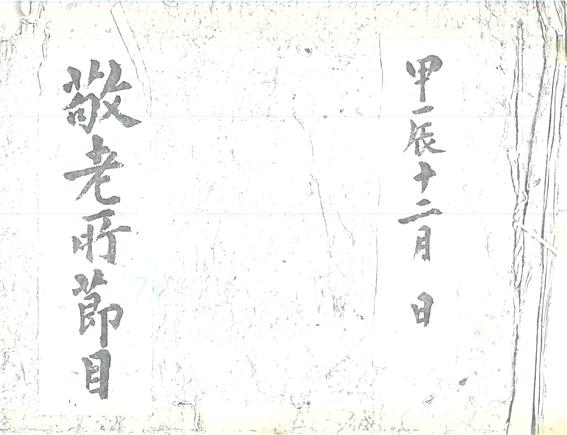 甲辰十二月 日
敬老所節目